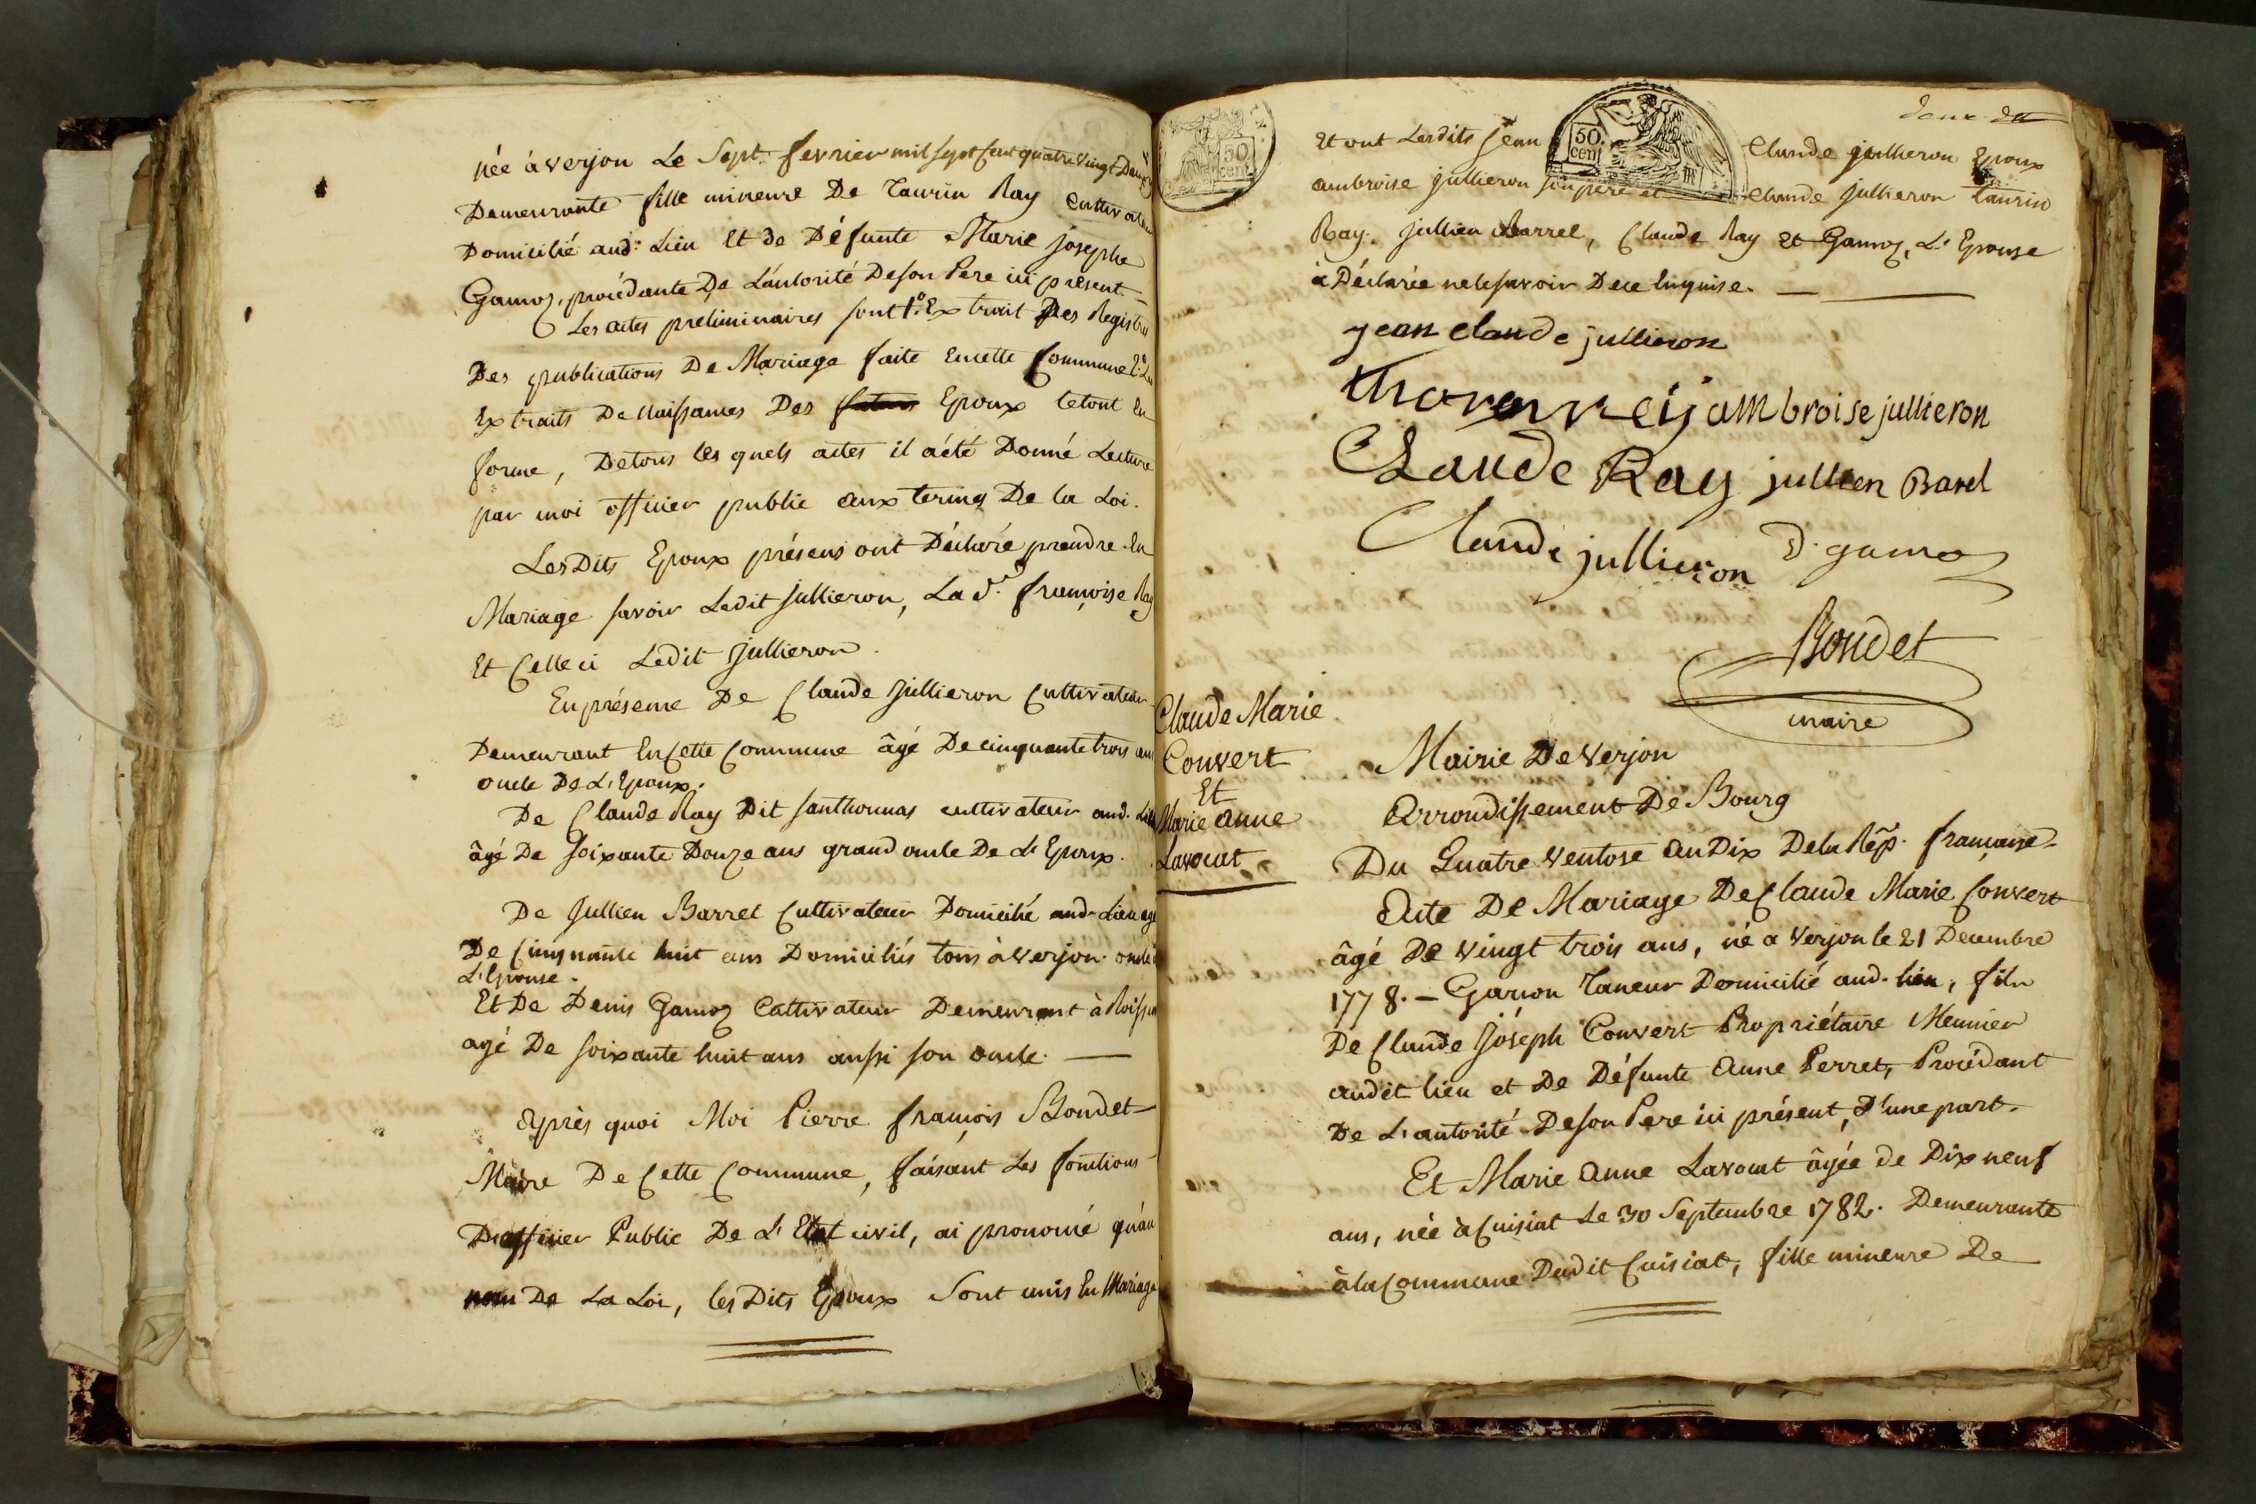 née à verjon Le Sept. fevrier mil sept Cent quatre vingt Deux
Demeurante fille mineure De Taurin Ray Cultivateur
Domicilié aud. Lieu Et de Défunte Marie josephe
Gamoz, procédante De L'autorité De son Pere ici présent
Les actes preliminaires sont 1.° Extrait Des Registres
Des publications De Mariage faite En cette Commune 2.° Les
Extraits De Naissances Des Epoux le tout En
forme, De tous les quels actes il a été Donné Lecture
par moi officier public aux termes De la Loi.
Les Dits Epoux présens ont Déclaré prendre En
Mariage savoir Ledit Jullieron, La d.e françoise Ray
Et Celle ci Ledit Jullieron.
En présence De Claude Jullieron Cultivateur
Demeurant En Cette Commune âgé De cinquante trois ans
oncle De L'Epoux.
De Claude Ray Dit santhonnas cultivateur aud. Lieu
âgé De soixante Douze ans grand oncle De L'Epoux.
De Jullien Barret Cultivateur Domicilié aud. Lieu age
De Cinquante huit ans Domiciliés tous à Verjon. oncle
L'Epouse.
Et De Denis Gamoz Cultivateur Demeurant à
agé De soixante huit ans aussi son oncle.
Après quoi Moi Pierre françois Bondet
Maire De Cette Commune, faisant Les fonctions
D'officier Public De L'Etat civil, ai prononcé qu'au
nom De La Loi, les Dits Epoux Sont unis En Mariage
50. cent
50. cent
Et ont Lesdits Jean Claude jullieron Epoux
ambroise jullieron son pere et Claude jullieron Taurin
Ray, jullien Barrel, Claude Ray et Gamoz, L'Epouse
a Déclarée ne le savoir De ce Enquise.
jean claude jullieron
ambroise jullieron
Claude Ray jullien Barel
Claude jullieron D. gamoz
Bondet
maire
Claude Marie
Convert
Et
Marie anne
Lavocat
Mairie De Verjon
Arrondissement De Bourg
Du Quatre Ventose an Dix De la Rép. française
Acte De Mariage De Claude Marie Convert
âgé De Vingt trois ans, né a Verjon le 21 Decembre
1778. – Garçon Taneur Domicilié aud. lieu, fils
De Claude Jóseph Convert Propriétaire Meunier
audit lieu et De Défunte Anne Perret, Procédant
De L'autorité De son Pere ici présent, D'une part.
Et Marie Anne Lavocat âgée de Dix neuf
ans, née à Cuisiat Le 30 Septembre 1782. Demeurante
à la Commune Dudit Cuisiat, fille mineure De